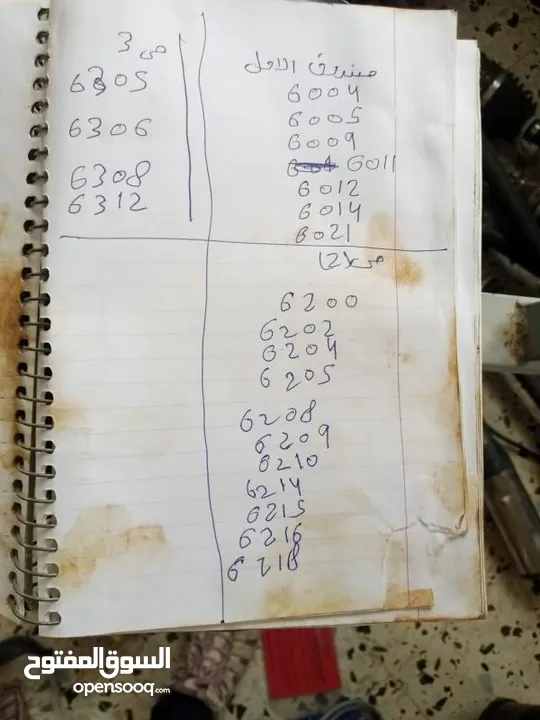 صندوق الاول
6004
6005
6009
6011
6012
6014
6021
ص (2)
6200
6202
6204
6205
6208
6209
6210
6214
6215
6216
6218
ص 3
6305
6306
6308
6312
السوق المفتوح
opensooq.com